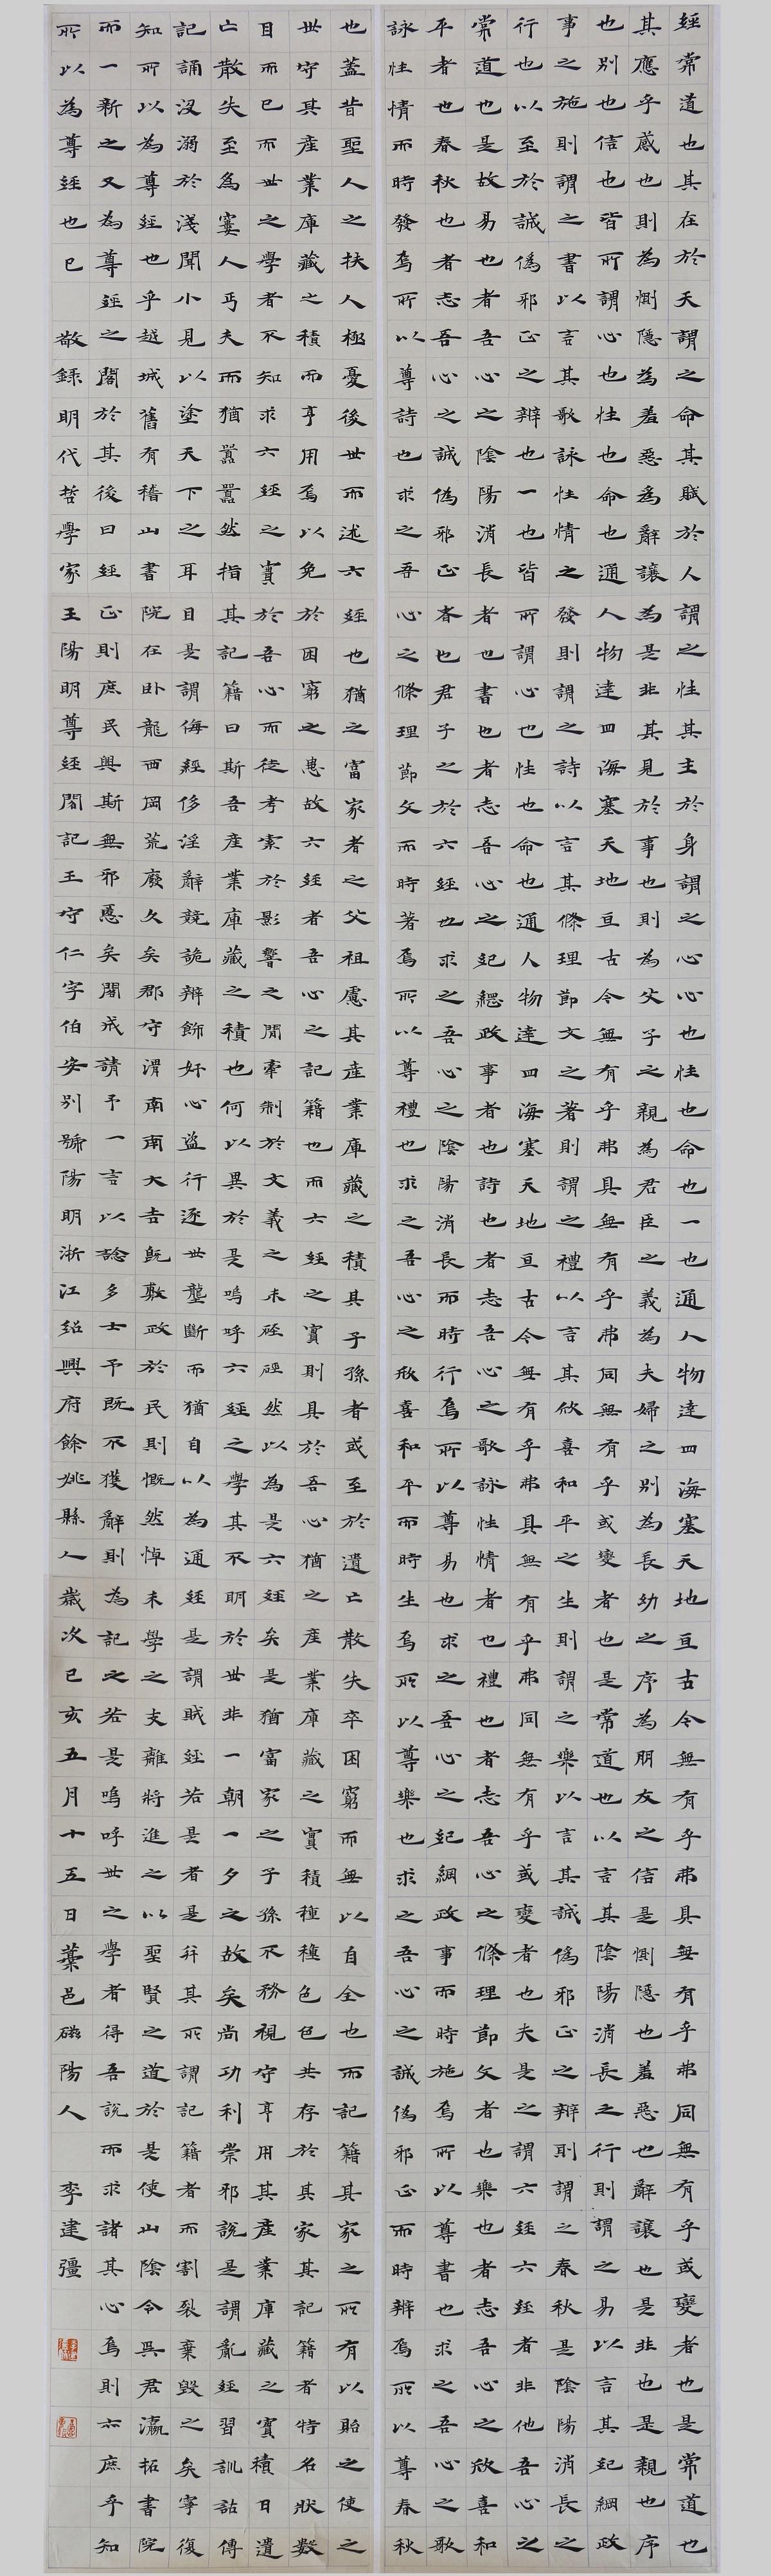 經常道也其在於天謂之命其賦於人謂之性其主於身謂之心心也性也命也一也通人物達四海塞天地亘古今無有乎弗具無有乎弗同無有乎或變者也是常道也
其應乎感也則為惻隱為羞惡為辭讓為是非其見於事也則為父子之親為君臣之義為夫婦之別為長幼之序為朋友之信是惻隱也羞惡也辭讓也是非也是親也序
也別也信也皆所謂心也性也命也通人物達四海塞天地亘古今無有乎弗具無有乎弗同無有乎或變者也是常道也以言其陰陽消長之行則謂之易以言其紀綱政
事之施則謂之書以言其歌詠性情之發則謂之詩以言其條理節文之著則謂之禮以言其欣喜和平之生則謂之樂以言其誠偽邪正之辯則謂之春秋是陰陽消長之
行也以至於誠偽邪正之辯也一也皆所謂心也性也命也通人物達四海塞天地亘古今無有乎弗具無有乎弗同無有乎或變者也夫是之謂六經六經者非他吾心之
常道也是故易也者吾心之陰陽消長者也書也者志吾心之紀綱政事者也詩也者志吾心之歌詠性情者也禮也者志吾心之條理節文者也樂也者志吾心之欣喜和
平者也春秋也者志吾心之誠偽邪正者也君子之於六經也求之吾心之陰陽消長而時行焉所以尊易也求之吾心之紀綱政事而時施焉所以尊書也求之吾心之歌
詠性情而時發焉所以尊詩也求之吾心之條理節文而時著焉所以尊禮也求之吾心之欣喜和平而時生焉所以尊樂也求之吾心之誠偽邪正而時辯焉所以尊春秋
也蓋昔聖人之扶人極憂後世而述六經也猶之富家者之父祖慮其產業庫藏之積其子孫者或至於遺亡散失卒困窮而無以自全也而記籍其家之所有以貽之使之
世守其產業庫藏之積而享用焉以免於困窮之患故六經者吾心之記籍也而六經之實則具於吾心猶之產業庫藏之實積種種色色共存於其家其記籍者特名狀數
目而已而世之學者不知求六經之實於吾心而徒考索於影響之間牽制於文義之末硜硜然以為是六經矣是猶富家之子孫不務視守享用其產業庫藏之實積日遺
亡散失至為窶人丐夫而猶囂囂然指其記籍曰斯吾產業庫藏之積也何以異於是嗚呼六經之學其不明於世非一朝一夕之故矣尚功利崇邪說是謂亂經習訓詁傳
記誦沒溺於淺聞小見以塗天下之耳目是謂侮經侈淫辭競詭辯飾奸心盜行逐世壟斷而猶自以為通經是謂賊經若是者是并其所謂記籍者而割裂棄毀之矣寧復
知所以為尊經也乎越城舊有稽山書院在臥龍西岡荒廢久矣郡守渭南南大吉既敷政於民則慨然悼末學之支離將進之以聖賢之道於是使山陰令吳君瀛拓書院
而一新之又為尊經之閣於其後曰經正則庶民興斯無邪慝矣閣成請予一言以諗多士予既不獲辭則為記之若是嗚呼世之學者得吾說而求諸其心焉則亦庶乎知
所以為尊經也已 敬錄明代哲學家王陽明尊經閣記王守仁字伯安別號陽明浙江紹興府餘姚縣人歲次己亥五月十五日藁邑磁陽人 李建彊